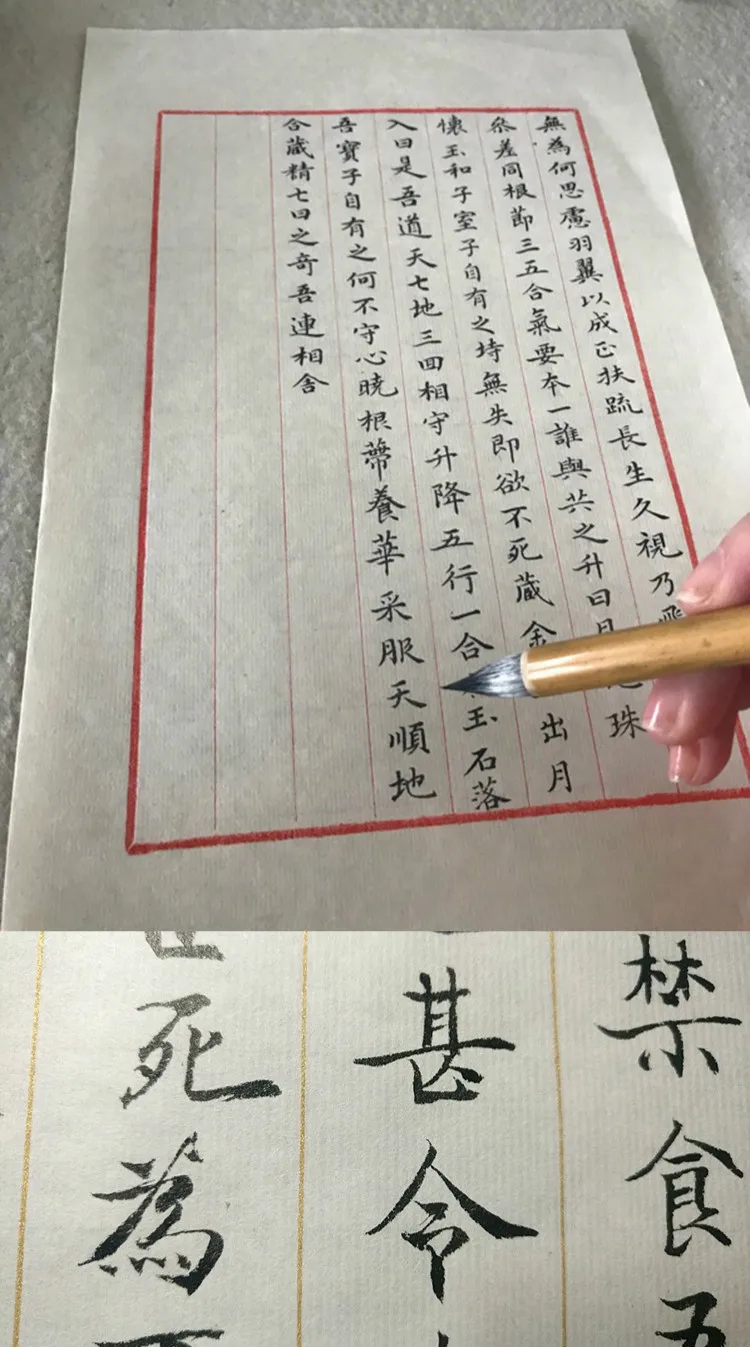 無為何思慮羽翼以成正扶疏長生久視乃飛
叅差同根節三五合氣要本一誰與共之升日月 珠
懷玉和子室子自有之持無失即欲不死藏金 出月
入日是吾道天七地三回相守升降五行一合 玉石落
吾寶子自有之何不守心曉根蔕養華采服天順地
合藏精七日之奇吾連相舍
禁食五
甚令
死為